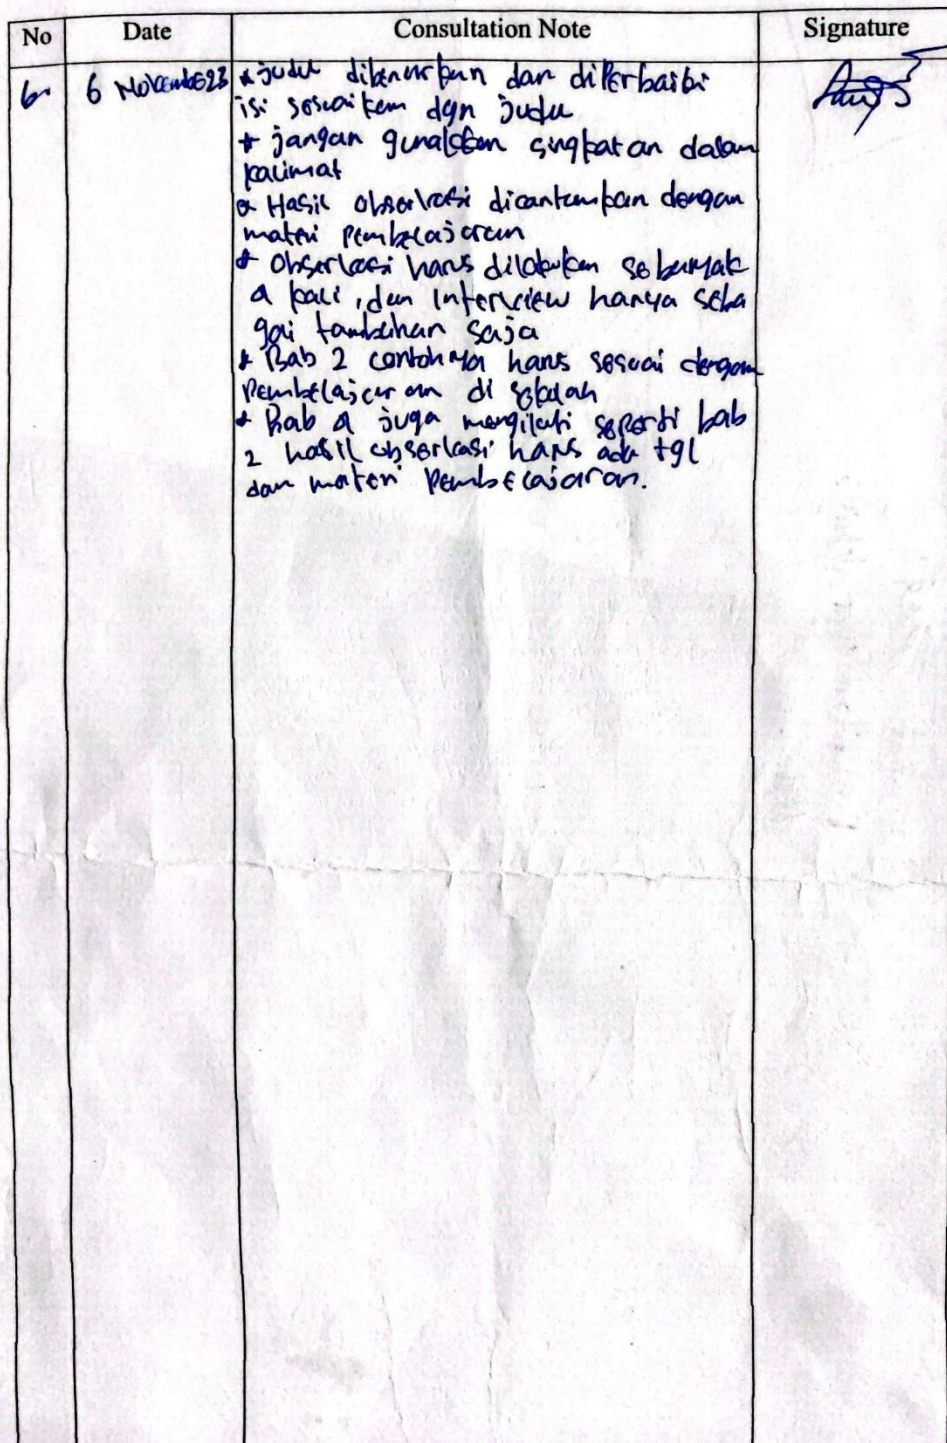 No Date Consultation Note Signature
6. 6 November23 * judul dibenarkan dan diperbaiki
isi sesuaikan dgn judul
* jangan gunakan singkatan dalam
kalimat
* Hasil observasi dicantumkan dengan
materi pembelajaran
* Observasi harus dilakukan sebanyak
4 kali, dan interview hanya seba
gai tambahan saja
* Bab 2 contohnya harus sesuai dengan
pembelajaran di sekolah
* Bab 4 juga mengikuti seperti bab
2 hasil observasi harus ada tgl
dan materi pembelajaran.